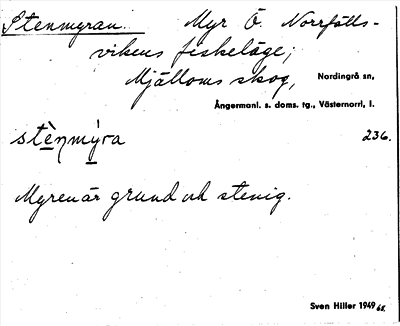 Stenmyran. Myr Ö. Norrfälls-
vikens fiskeläge;
Mjälloms skog, Nordingrå sn,
Ångermanl. s. doms. tg., Västernorrl, l.
stènmýra 236.
Myren är grund och stenig.
Sven Hiller 1949